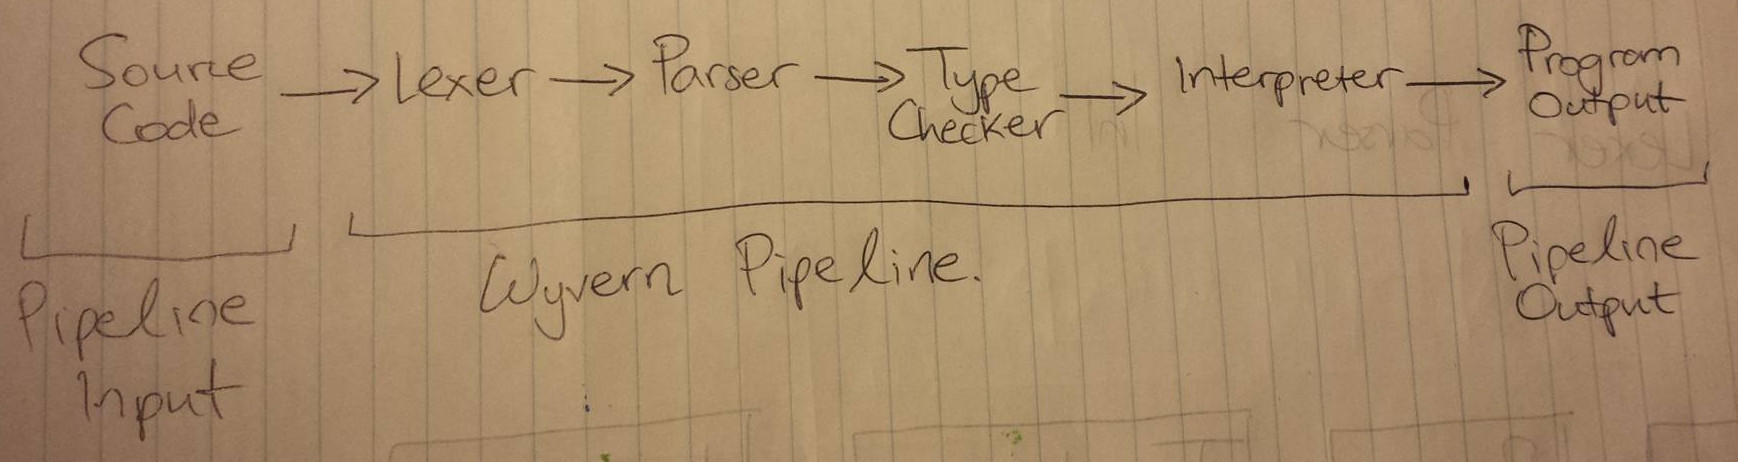 Source
Code
Lexer
Parser
Type
Checker
Interpreter
Program
Output
Pipeline
Input
Wyvern Pipeline.
Pipeline
Output
Lexer
Parser